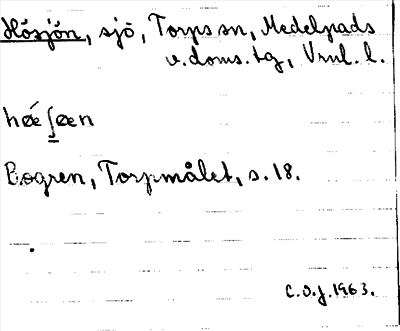 Hösjön, sjö, Torps sn, Medelpads
v. doms. tg, Vrnl. l.
hǿʃøn
Bogren, Torpmålet, s. 18.
C.O.J. 1963.